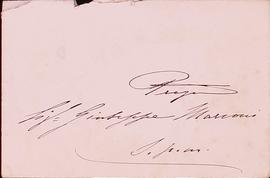 Sig.r Giuseppe Marconi
S. p. m.